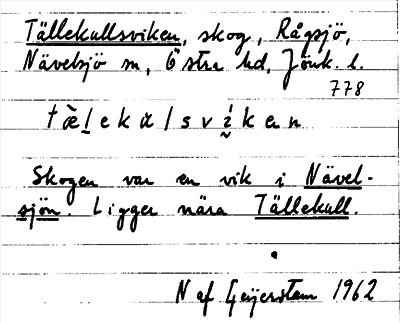 Tällekullsviken, skog, Rågsjö,
Nävelsjö sn, Östra hd, Jönk. l.
778
tæ̀l̲ekul̀svíken
Skogen var en vik i Nävel-
sjön. Ligger nära Tällekull.
N af Geijerstam 1962